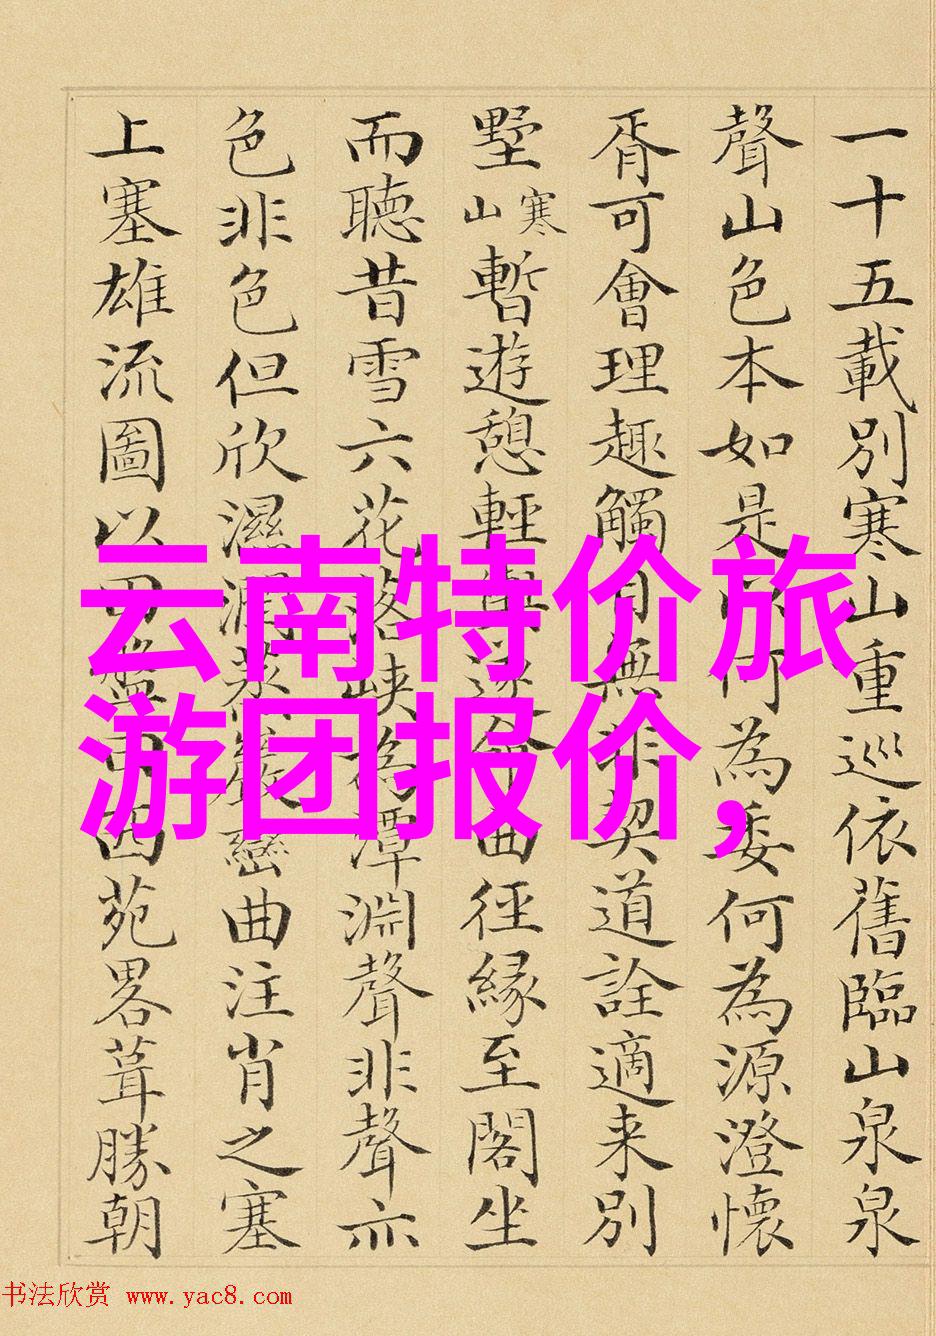 一十五載別寒山重巡依舊臨山泉泉
聲山色本如是何為委何為源澄懷
胥可會理趣觸目無非契道詮適来別
墅寒山暫遊憩輕輿逐曲徑緣至閣坐
而聽昔雪六花落峡為潭淵聲非聲亦
色非色但欣濕潤蒸巖巒曲注肖之塞
上塞雄流圖以田盤西苑畧葺勝朝
云南特价旅
游团报价,
书法欣赏 www.yac8.com